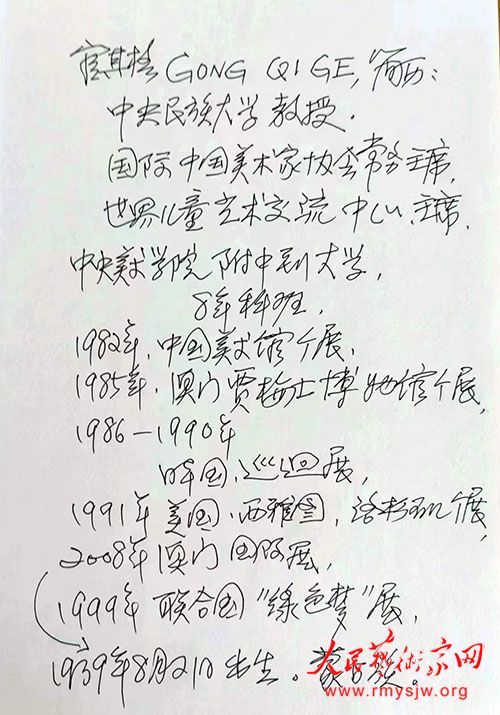 宫其格 GONG QI GE, 简历:
中央民族大学教授.
国际中国美术家协会常务主席,
世界儿童艺术交流中心主席,
中央美术学院附中到大学,
8年科班,
1982年.中国美术馆个展,
1985年.澳门贾梅士博物馆个展,
1986—1990年
国.巡迴展,
1991年美国.西雅图,洛杉矶个展,
2008年澳门国际展,
1999年联合国“绿色梦”展,
1939年8月21日出生。蒙古族。
人民艺術家网
www.rmysjw.org